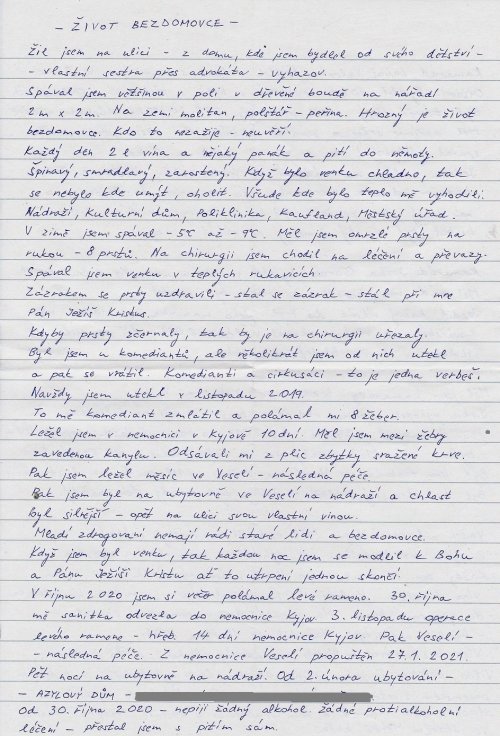 - ŽIVOT BEZDOMOVCE -
Žil jsem na ulici - z domu, kde jsem bydlel od svého dětství -
- vlastní sestra přes advokáta - vyhazov.
Spával jsem většinou v poli v dřevěné boudě na nářadí
2 m x 2 m. Na zemi molitan, polštář - peřina. Hrozný je život
bezdomovce. Kdo to nezažije - neuvěří.
Každý den 2 l vína a nějaký panák a pití do němoty.
Špinavý, smradlavý, zarostený. Když bylo venku chladno, tak
se nebylo kde umýt, oholit. Všude kde bylo teplo mě vyhodili.
Nádraží, Kulturní dům, Poliklinika, Kaufland, Městský úřad.
V zimě jsem spával -5°C až -9°C. Měl jsem omrzlé prsty na
rukou - 8 prstů. Na chirurgii jsem chodil na léčení a převazy.
Spával jsem venku v teplých rukavicích
Zázrakem se prsty uzdravili - stal se zázrak - stál při mne
Pán Ježíš Kristus.
Kdyby prsty zčernaly, tak by je na chirurgii uřezaly.
Byl jsem u komediantů, ale několikrát jsem od nich utekl
a pak se vrátil. Komedianti a cirkusáci - to je jedna verbeš.
Navždy jsem utekl v listopadu 2019.
To mě komediant zmlátil a polámal mi 8 žeber.
Ležel jsem v nemocnici v Kyjově 10 dní. Měl jsem mezi žebry
zavedenou kanylu. Odsávali mi z plic zbytky sražené krve.
Pak jsem ležel měsíc ve Veselí - následná péče
Pak jsem byl na ubytovně ve Veselí na nádraží a chlast
byl silnější - opět na ulici svou vlastní vinou.
Mladí zdrogovaní nemají rádi staré lidi a bezdomovce.
Když jsem byl venku, tak každou noc jsem se modlil k Bohu
a Pánu Ježíši Kristu ať to utrpení jednou skončí.
V říjnu 2020 jsem si večer polámal levé rameno. 30. října
mě sanitka odvezla do nemocnice Kyjov. 3. listopadu operace
levého ramene - hřeb. 14 dní nemocnice Kyjov. Pak Veselí -
- následná péče. Z nemocnice Veselí propuštěn 27.1.2021.
Pět nocí na ubytovně na nádraží. Od 2. února ubytování -
- AZYLOVÝ DŮM -
Od 30. října 2020 - nepiji žádný alkohol. žádné protialkoholní
léčení - přestal jsem s pitím sám.